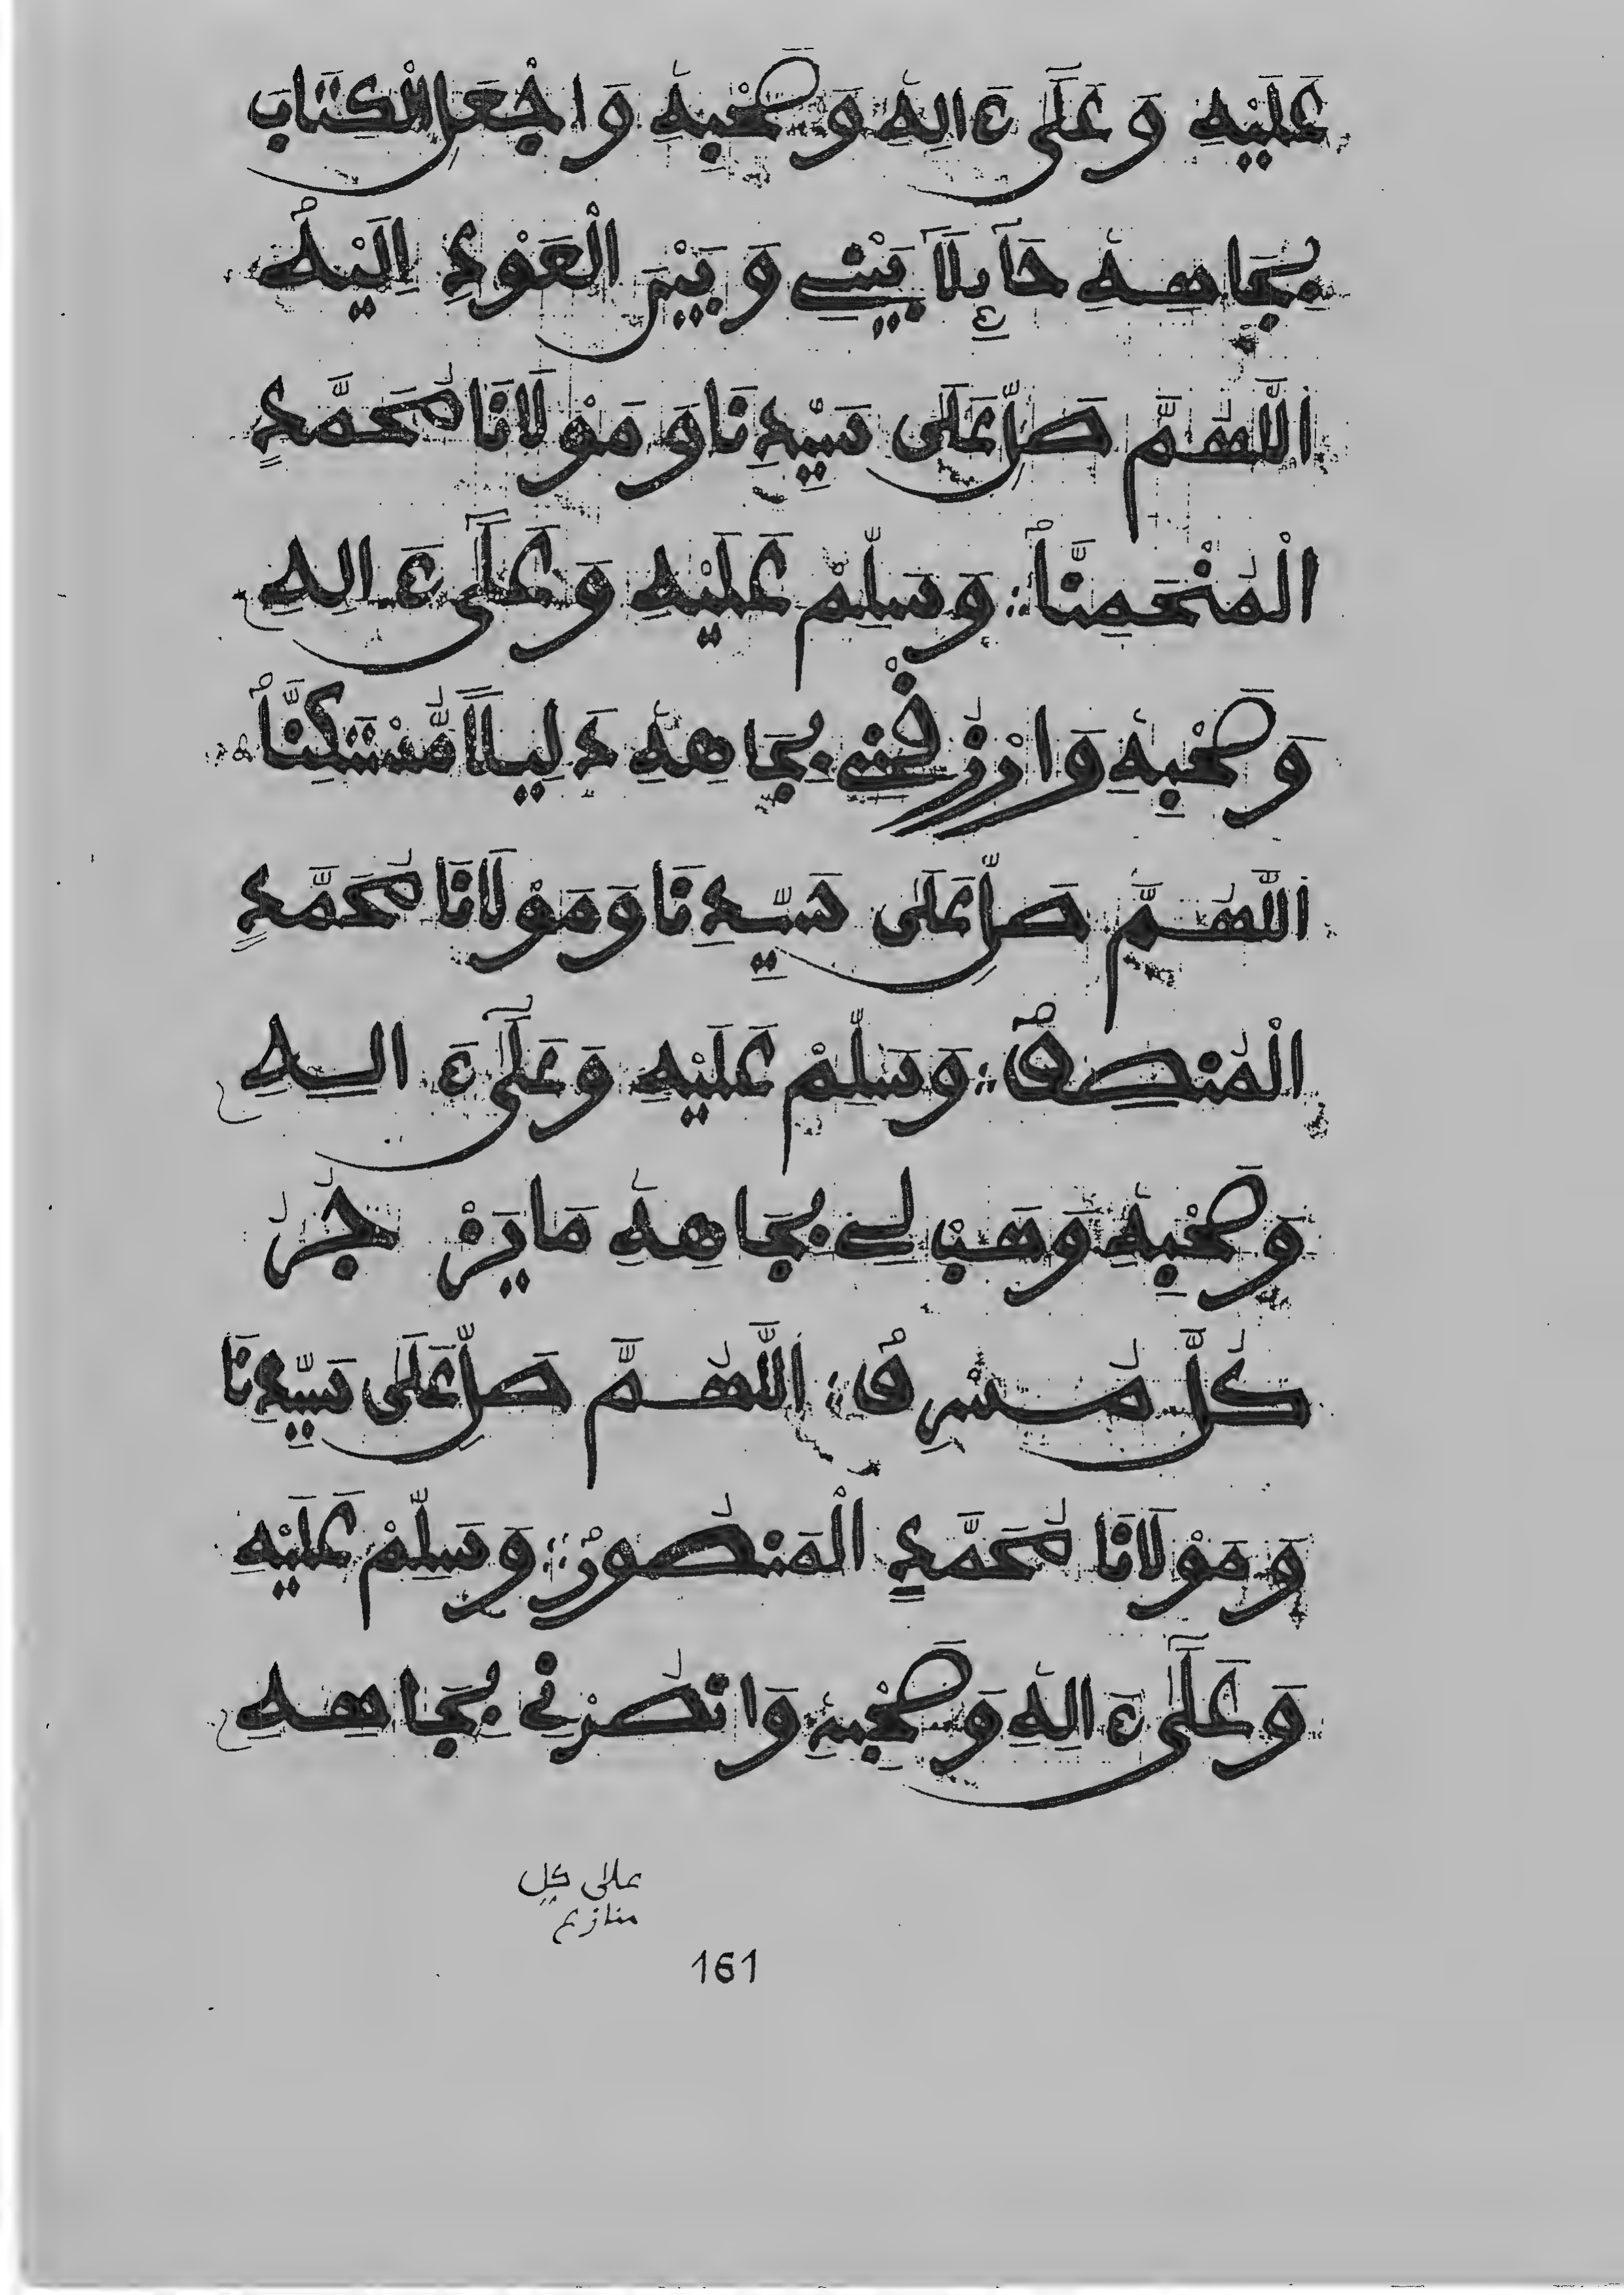 عَلَيْهِ وَعَلَىٰ ءَالِهِ وَصَحْبِهِ وَاجْعَلِ الْكِتَابَ
بِجَاهِهِ حَآئِلًا بَيْنِي وَبَيْنَ الْعَوْدِ إِلَيْهِ
اللَّهُمَّ صَلِّ عَلَى سَيِّدِنَا وَمَوْلَانَا مُحَمَّدٍ
الْمُنْحَمِنَّا وَسَلِّمْ عَلَيْهِ وَعَلَىٰ ءَالِهِ
وَصَحْبِهِ وَارْزُقْنِي بِجَاهِهِ دَلِيلًا مُّسْتَكِنًّا
اللَّهُمَّ صَلِّ عَلَى سَيِّدِنَا وَمَوْلَانَا مُحَمَّدٍ
الْمُنْصِفِ وَسَلِّمْ عَلَيْهِ وَعَلَىٰ ءَالِهِ
وَصَحْبِهِ وَهَبْ لِي بِجَاهِهِ مَا يَزْجُرُ
كُلَّ مُسْرِفٍ اللَّهُمَّ صَلِّ عَلَى سَيِّدِنَا
وَمَوْلَانَا مُحَمَّدٍ الْمَنْصُورِ وَسَلِّمْ عَلَيْهِ
وَعَلَىٰ ءَالِهِ وَصَحْبِهِ وَانْصُرْنِي بِجَاهِهِ
على كل
161